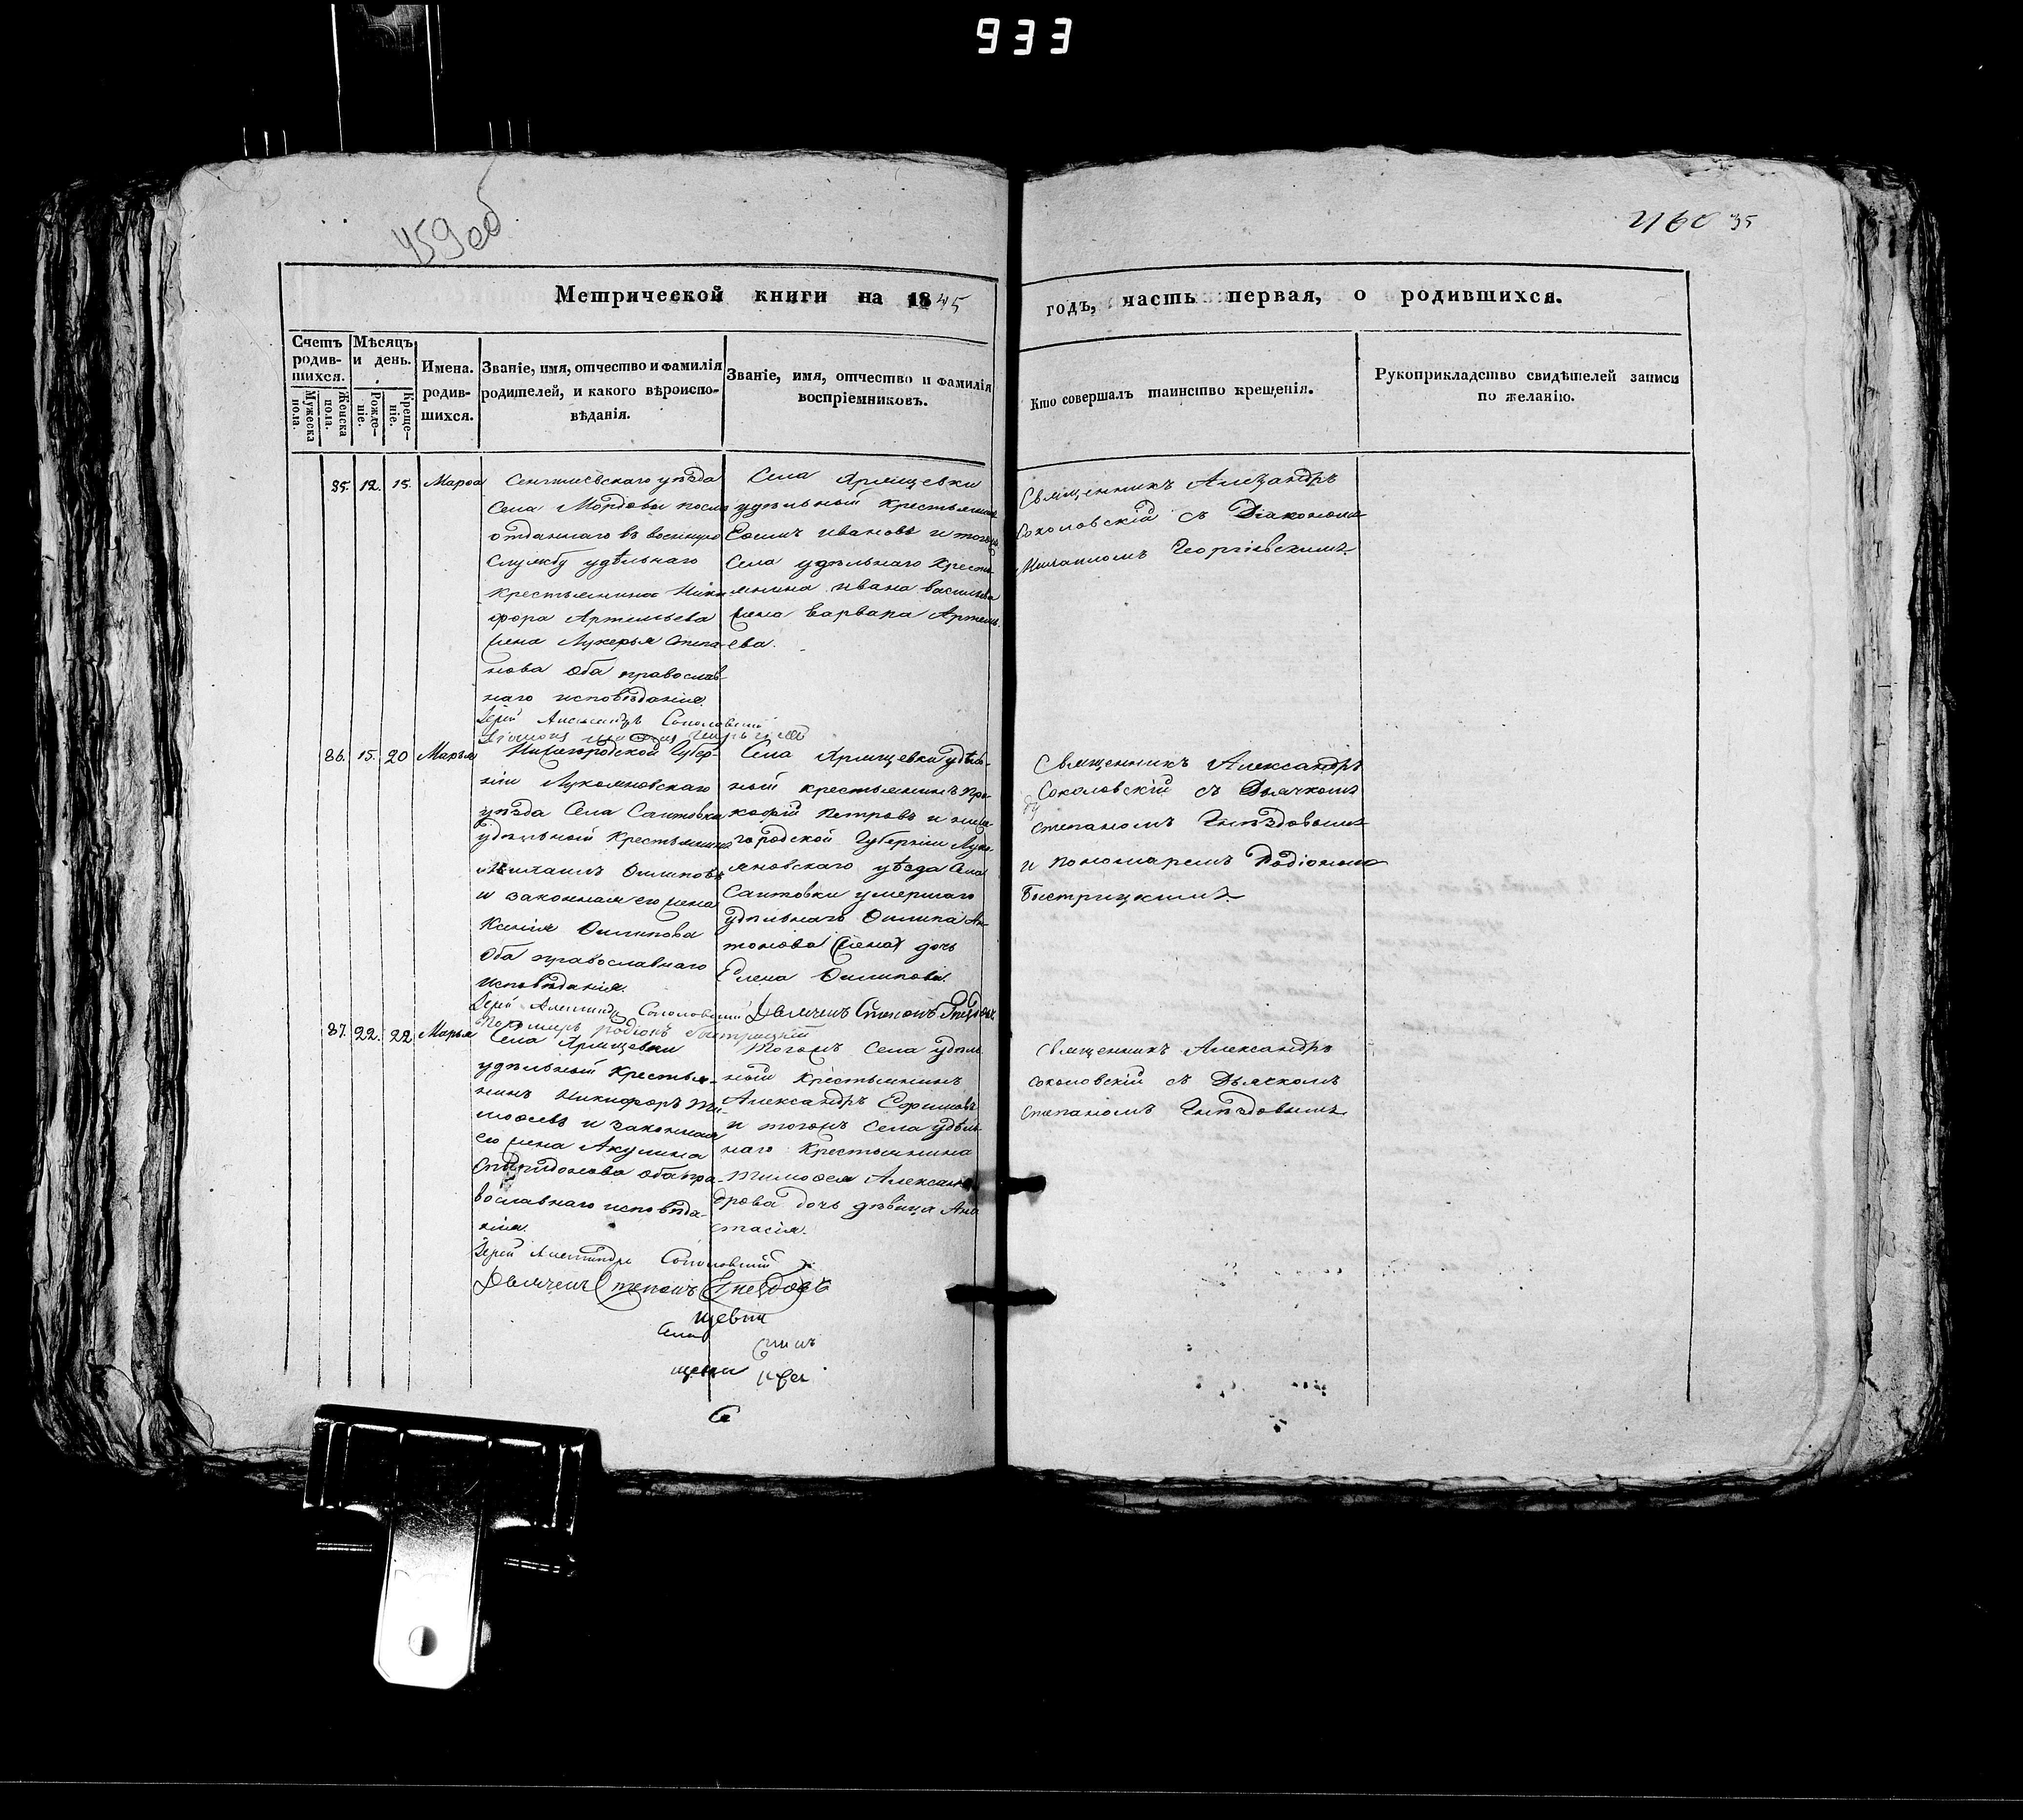 933
459 об
460 35
Метрической книги на 1845
годъ, часть первая, о родившихся.
Счетъ родив-шихся.
Мужеска пола.
Женска пола.
Мѣсяцъ и день.
Рожде-ніе.
Креще-ніе.
Имена. родив-шихся.
Званіе, имя, отчество и фамилія
родителей, и какого вѣроиспо-
вѣданія.
Званіе, имя, отчество и фамилія
воспріемниковъ.
Кто совершалъ таинство крещенія.
Рукоприкладство свидѣтелей записи
по желанію.
35. 12. 15. Марѳа
Сенгилѣевскаго уѣзда
Села Мордовы посла
отданнаго въ военную
службу удѣльнаго
крестьянина Ники
фора Артемьева
жена Лукерья Степа-
нова оба православ-
наго исповѣданія.
Іерей Александръ Соколовскій
Села Ярищевки
удѣльный крестьянинъ
Ѳома Ивановъ и тогожъ
Села удѣльнаго Кресть
янина Ивана Васильева
жена Варвара Артемь
ева.
Священникъ Александръ
Соколовскій съ Діакономъ
Михаиломъ Георгіевскимъ
36. 15. 20 Марья
Нижегородской Губер-
ніи Лукояновскаго
уѣзда Села Саитовки
удѣльный Крестьянинъ
Михаилъ Филиповъ
и законная его жена
Ксенія Филипова
Оба православнаго
исповѣданія.
Іерей Александръ Соколовскій Дьячекъ Степанъ Гнѣздовъ
Пономарь Родіонъ Быстрицкій
Села Ярищевки удѣль-
ный крестьянинъ Про-
кофій Петровъ и ниже
городской Губерніи Луко
яновскаго уѣзда Села
Саитовки умершаго
удѣльнаго Филипа Ан
тонова (жена) дочь
Елена Филипова.
Священникъ Александръ
Соколовскій съ Дьячкомъ
Степаномъ Гнѣздовымъ
и Пономаремъ Родіономъ
Быстрицкимъ
37. 22. 22 Марья
Села Ярищевки
удѣльный Крестья-
нинъ Никифоръ Ти-
моѳеевъ и законная
его жена Акулина
Спиридонова оба пра-
вославнаго исповѣда-
нія.
Іерей Александръ Соколовскій
Дьячекъ Степанъ Гнездовъ
Тогожъ Села удѣль
ный Крестьянинъ
Александръ Ефимовъ
и тогожъ Села удѣль
наго Крестьянина
Тимоѳея Алексан
дрова дочь дѣвица Ана
стасія.
Священникъ Александръ
Соколовскій съ Дьячкомъ
Степаномъ Гнѣздовымъ
щевки
Села
щевки